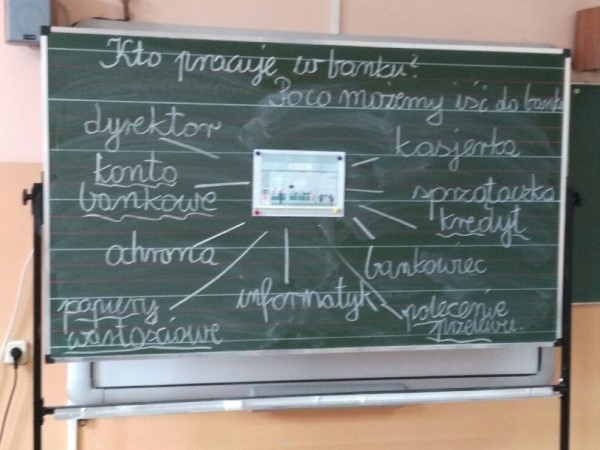 Kto pracuje w banku?
Poco możemy iść do banku
dyrektor
kasjerka
konto
bankowe
sprzątaczka
kredyt
ochrona
bankowiec
informatyk
papiery
wartościowe
polecenie
przelewu.